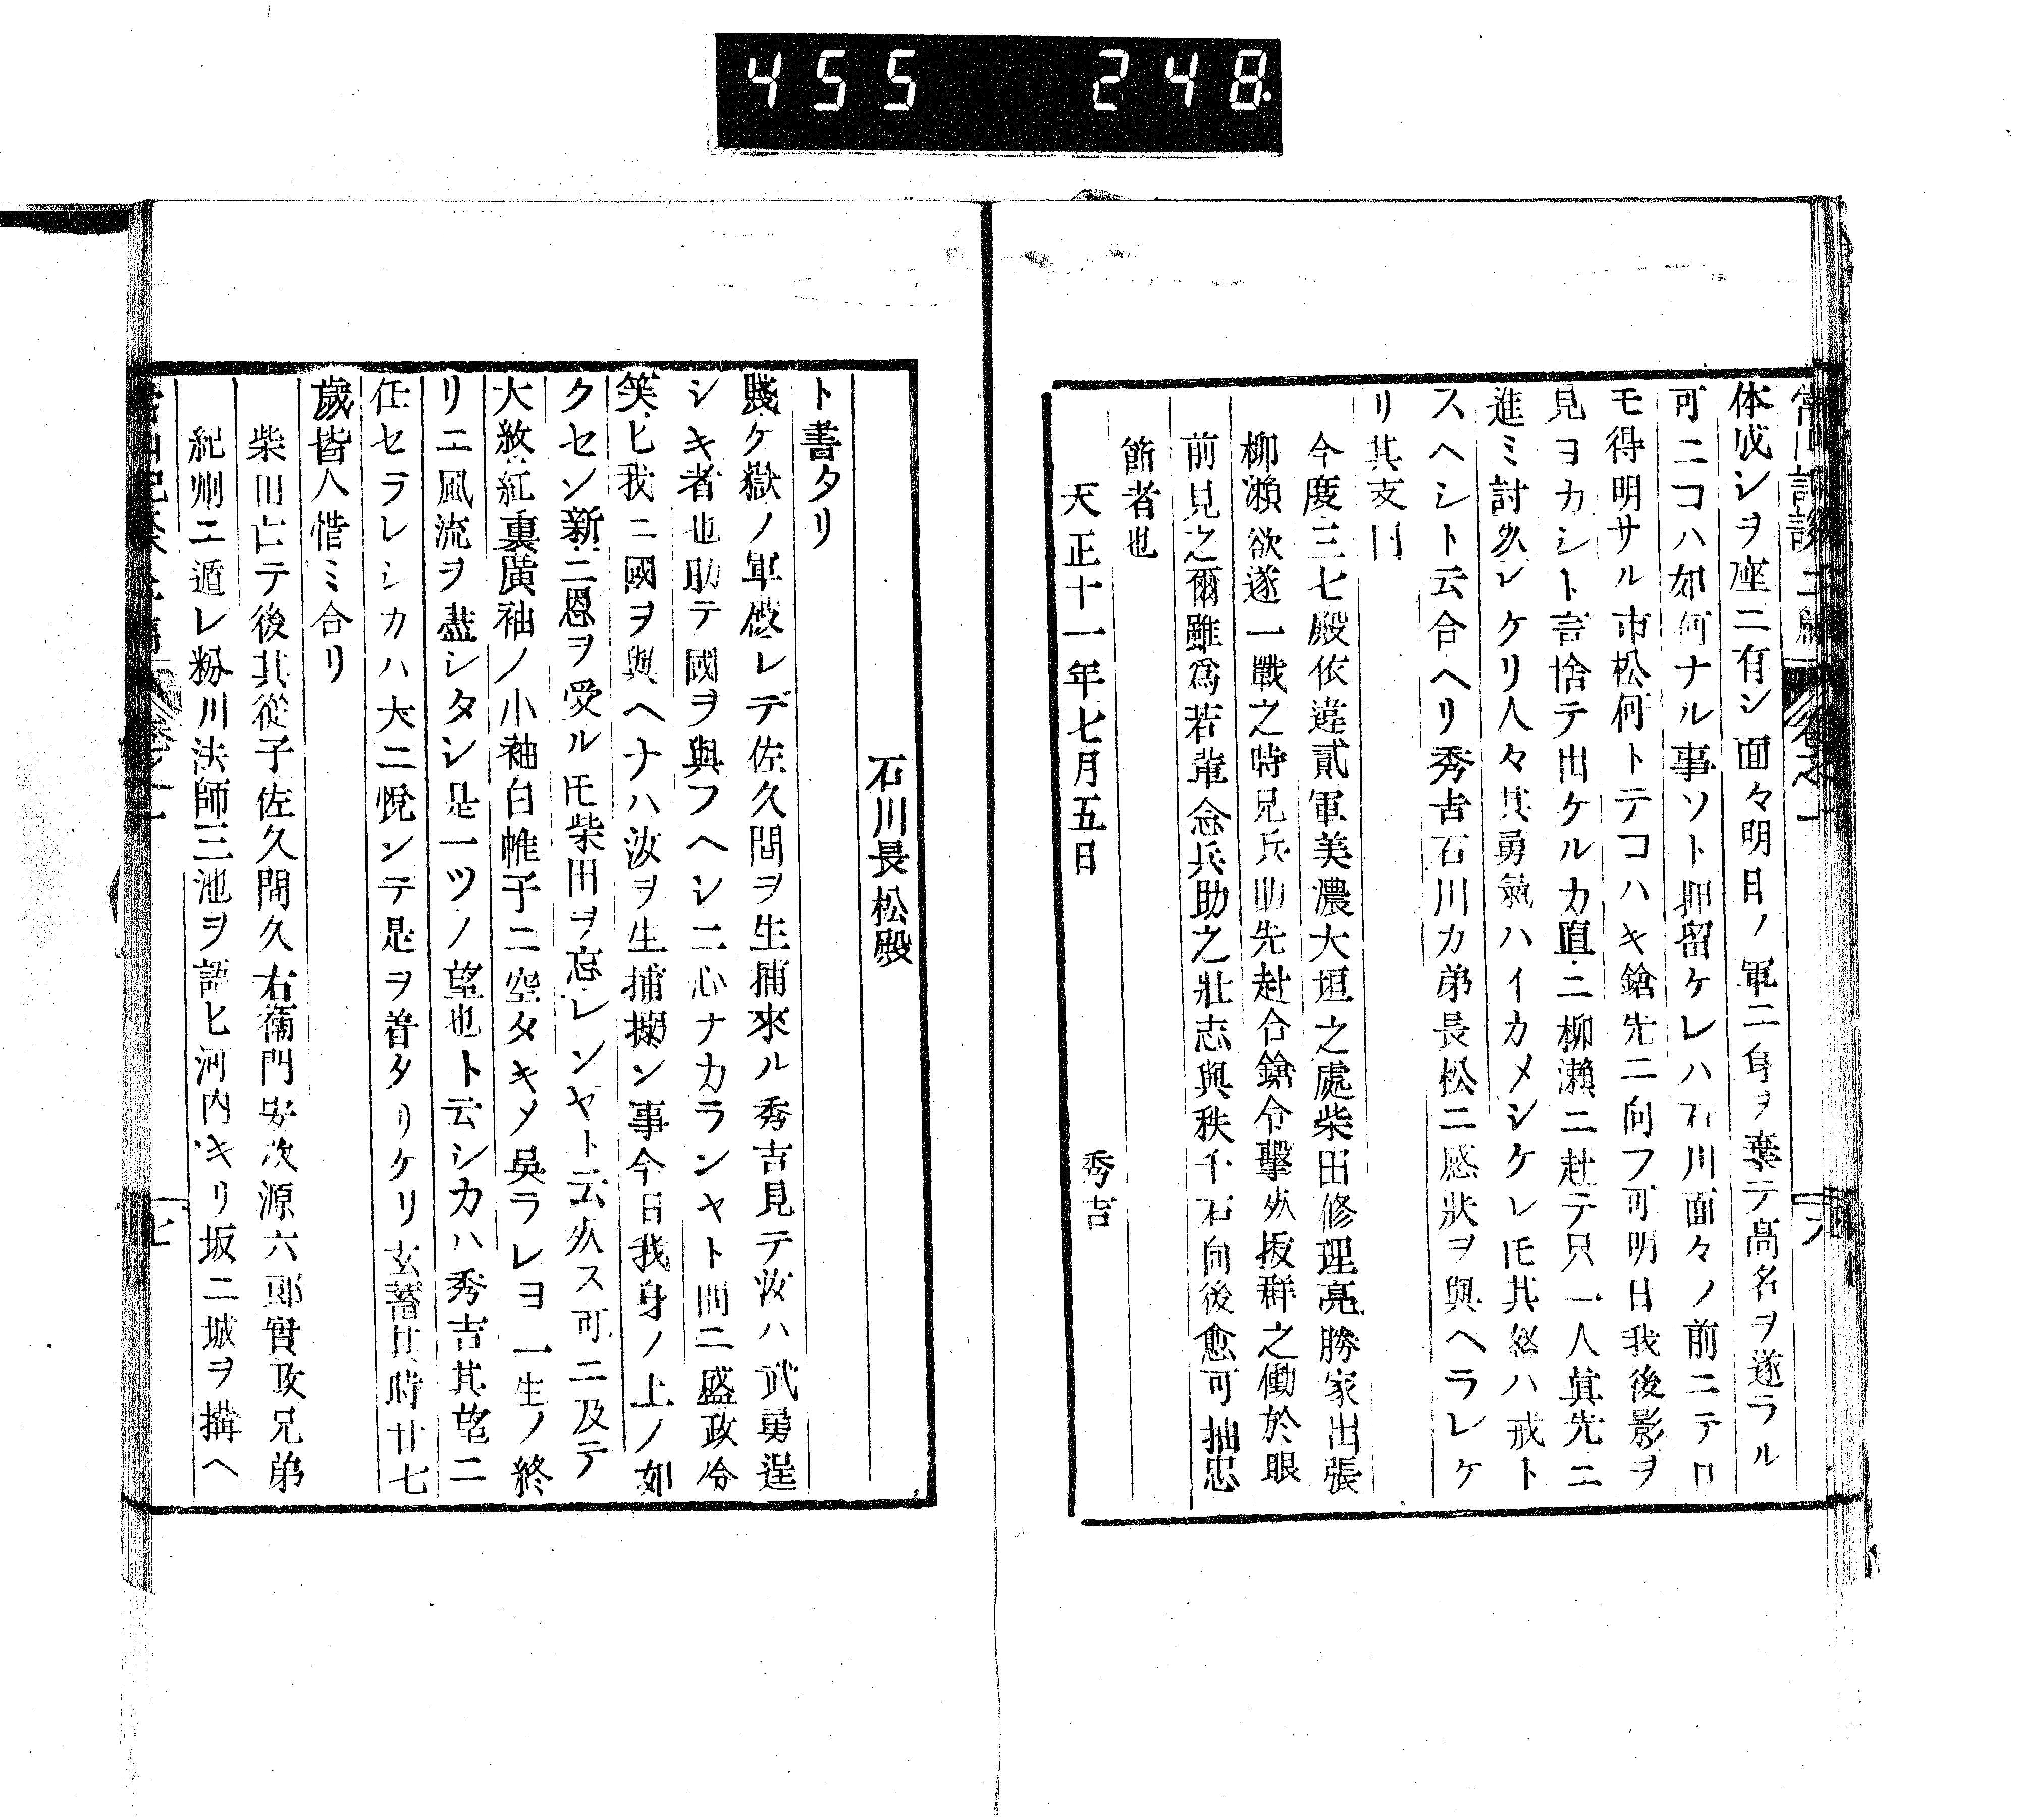 455 248
体成シヲ座ニ有シ面々明日ノ軍ニ身ヲ棄テ高名ヲ遂ラル
可ニコハ如何ナル事ソト押留ケレハ石川面々ノ前ニテロ
モ得明サル市松何トテコハキ鎗先ニ向フ可明日我後影ヲ
見ヨカシト言捨テ出ケルカ直ニ柳瀬ニ赴テ只一人眞先ニ
進ミ討死シケリ人々其勇氣ハイカメシケレ𪜈其怒ハ戒ト
スヘシト云合ヘリ秀吉石川カ弟長松ニ感狀ヲ與ヘラレケ
リ其文ニ曰
今度三七殿依違貳軍美濃大垣之處柴田修理亮勝家出張
柳瀬欲遂一戰之時兄兵助先赴合鎗令擊死抜群之働於眼
前見之爾雖爲若輩念兵助之壯志與秩千石向後愈可抽忠
節者也
天正十一年七月五日
秀吉
石川長松殿
ト書タリ
賤ケ嶽ノ軍破レテ佐久間ヲ生捕來ル秀吉見テ汝ハ武勇逞
シキ者也助テ國ヲ與フヘシ二心ナカランヤト問ニ盛政冷
笑ヒ我ニ國ヲ與ヘナハ汝ヲ生捕搦ン事今日我身ノ上ノ如
クセン新ニ恩ヲ受ル𪜈柴田ヲ忘レンヤト云死ス可ニ及テ
大紋紅裏廣袖ノ小袖白帷子ニ空タキメ吳ラレヨ一生ノ終
リニ風流ヲ盡シタシ是一ツノ望也ト云シカハ秀吉其望ニ
任セラレシカハ大ニ悅ンテ是ヲ着タリケリ玄蕃其時廿七
歲皆人惜ミ合リ
柴田亡テ後其從子佐久間久右衞門安次源六郎實政兄弟
紀州エ遁レ粉川法師三池ヲ語ヒ河内キリ坂ニ城ヲ搆ヘ
七